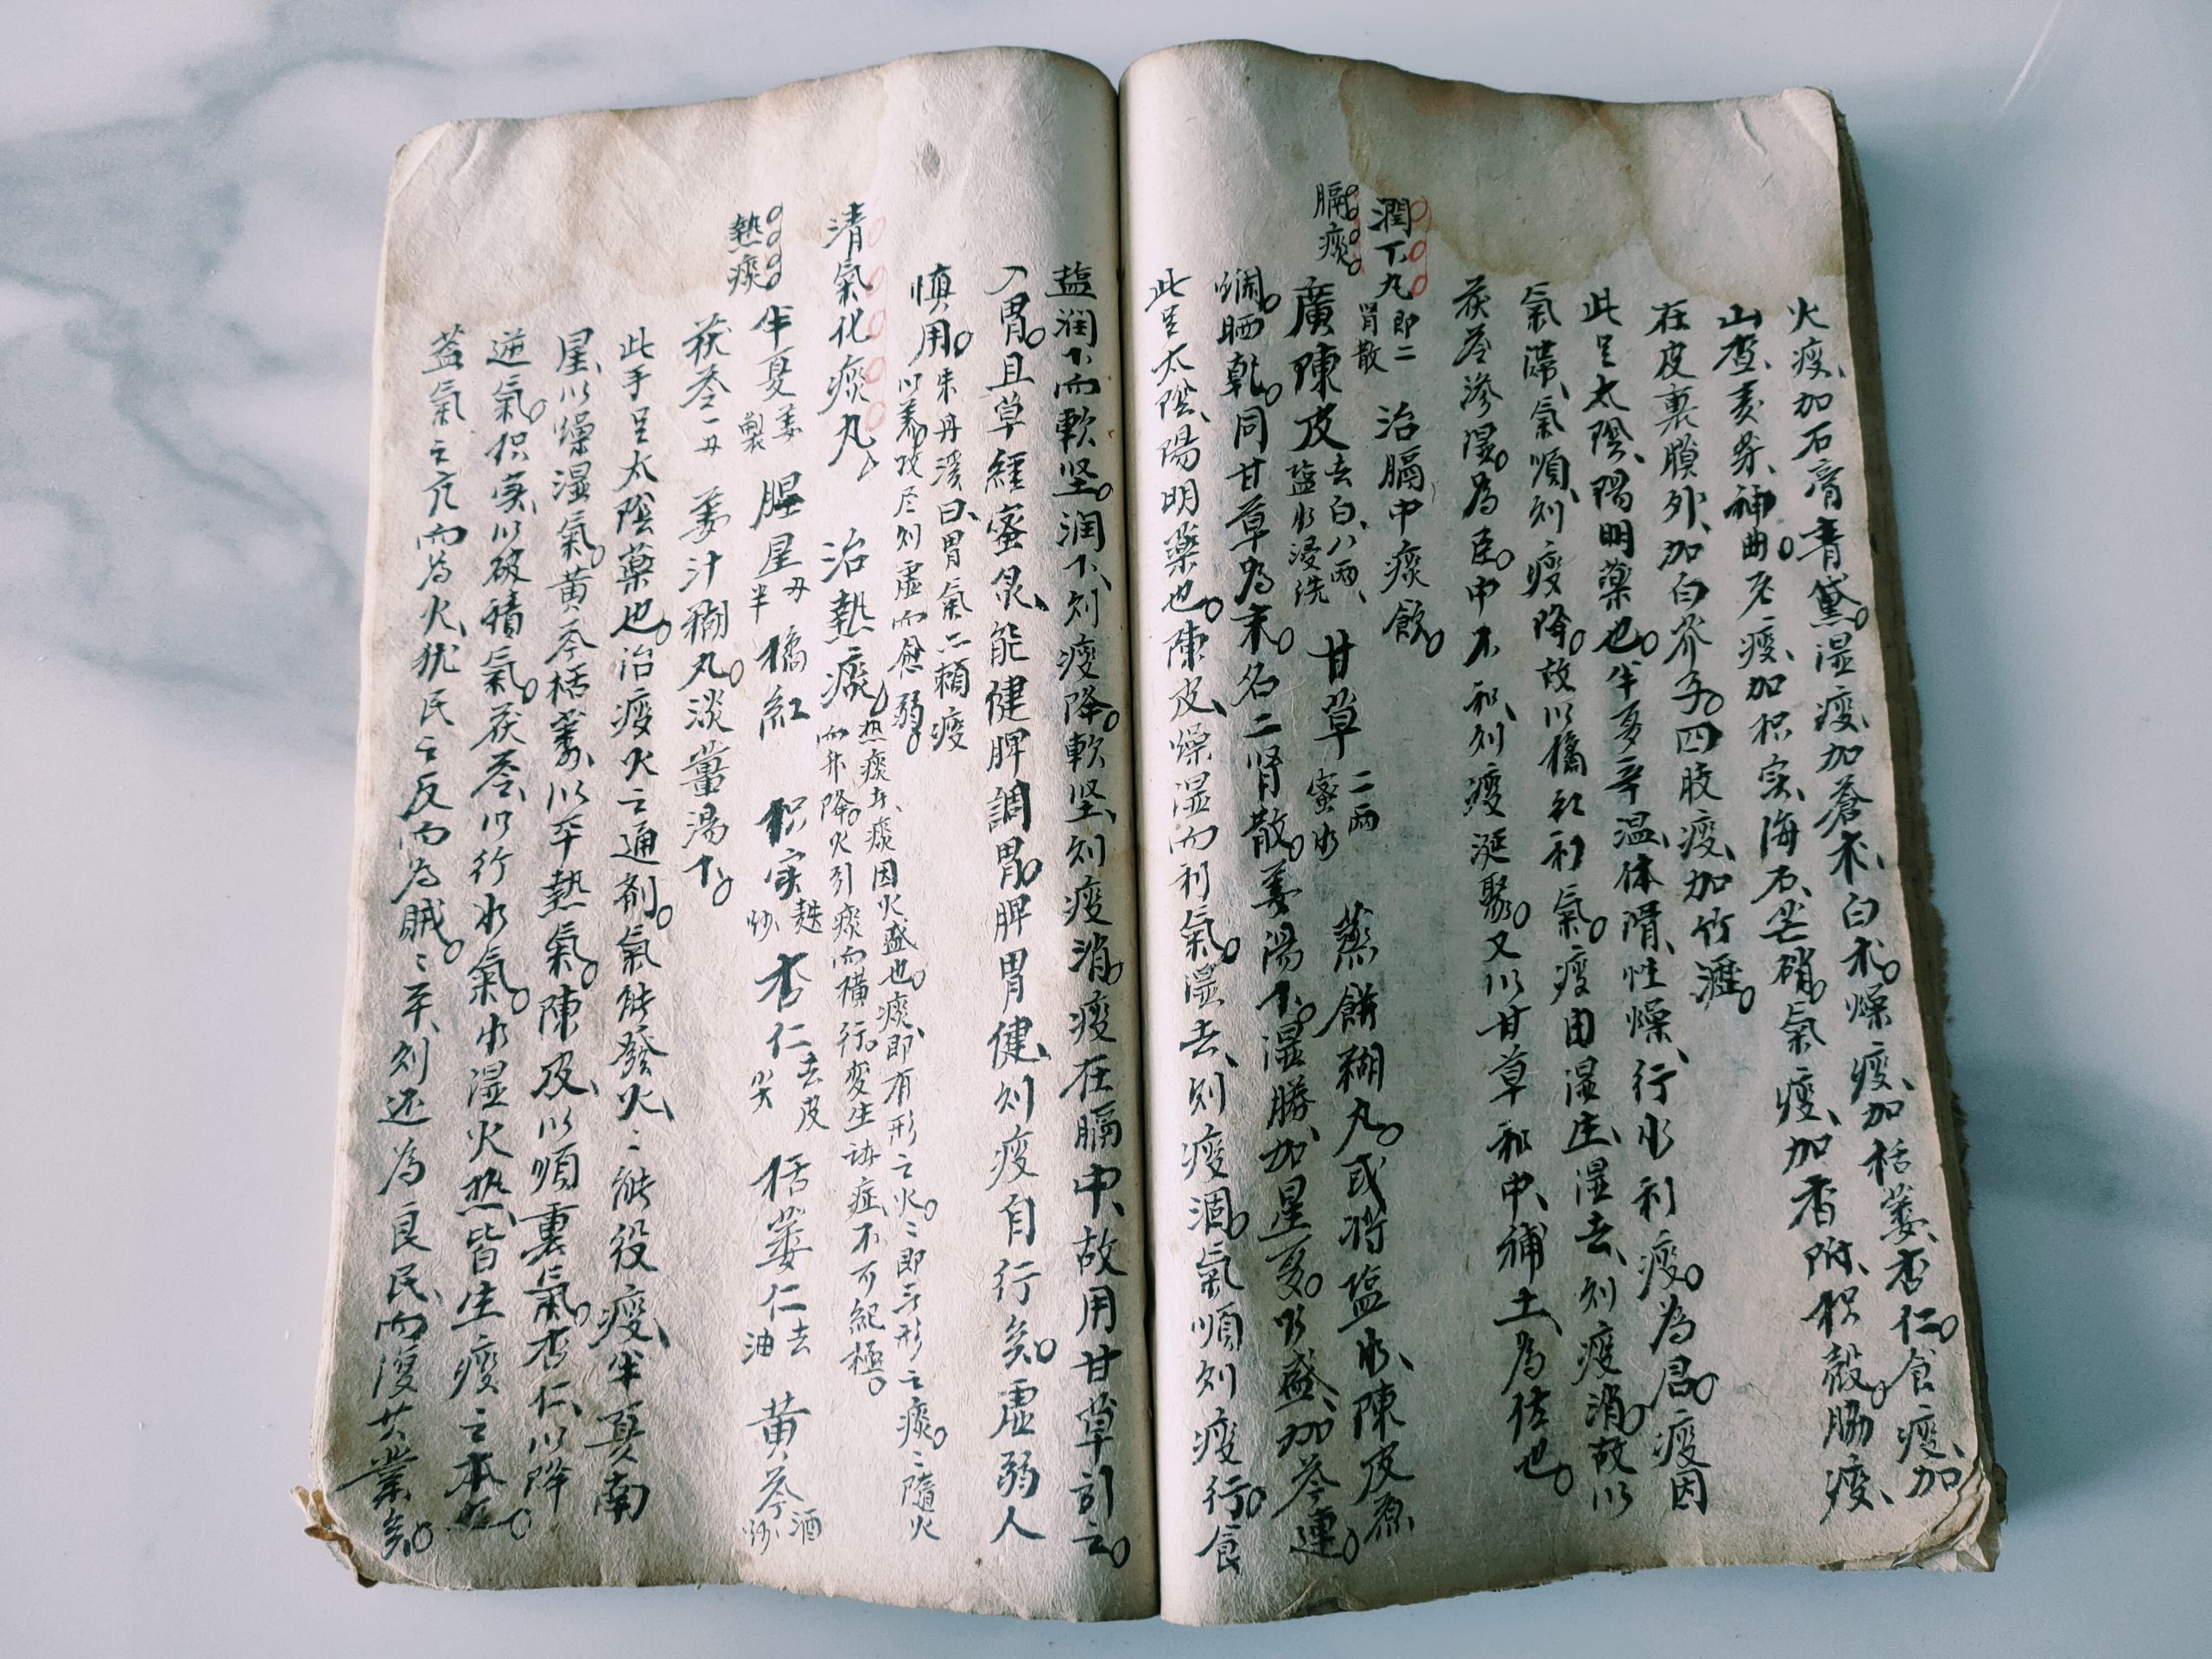 火痰、加石膏青黛。湿痰、加蒼术、白术。燥痰、加栝蔞、杏仁。食痰、加
山查、麦芽、神曲。老痰、加枳实、海石、芒硝。氣痰、加香附、枳殼。脇痰、
在皮裏膜外、加白芥子。四肢痰、加竹瀝。
此足太陰、陽明藥也。半夏辛温、体滑、性燥、行水利痰。為君。痰因
氣滯、氣順、则痰降。故以橘紅利氣。痰由湿生、湿去、则痰消。故以
茯苓滲湿。為臣。中不和、则痰涎聚。又以甘草和中、補土、為佐也。
潤下丸即二肾散 治膈中痰飲。
膈痰。 廣陳皮去白、八兩、塩水浸洗 甘草二兩蜜水 蒸餅糊丸。或将塩水、陳皮煮
爛。晒乾。同甘草為末。名二肾散。姜湯下。湿勝、加星夏。火盛、加芩連。
此足太陰、陽明藥也。陳皮、燥湿而利氣。湿去、则痰涸。氣順则痰行。食
盐潤下而軟坚。潤下、则痰降。軟坚、则痰消。痰在膈中、故用甘草引之。
入胃。且草經蜜炙、能健脾調胃。脾胃健、则痰自行矣。虚弱人
慎用。朱丹溪曰、胃氣亦賴痰以养。攻尽则虚而愈弱。
清氣化痰丸 治熱痰。热痰者、痰因火盛也。痰、即有形之火。火即無形之痰。痰隨火而升降。火引痰而横行。変生诸症、不可紀極。
熱痰 半夏姜製 膽星丹半 橘紅 枳实麸炒 杏仁去皮尖 栝蔞仁去油 黄芩酒炒
茯苓一丹 姜汁糊丸。淡薑湯下。
此手足太陰藥也。治痰火之通剤。氣能發火、〻能役痰、半夏南
星、以燥湿氣。黄芩栝蔞、以平熱氣。陳皮、以順裏氣。杏仁、以降
逆氣。枳实、以破積氣。茯苓、以行水氣。水湿火热、皆生痰之本也。
蓋氣之亢而為火、犹民之反而為賊。〻平、则还為良民、而復其業矣。